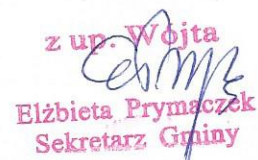 z up. Wójta
Elżbieta Prymaczek
Sekretarz Gminy